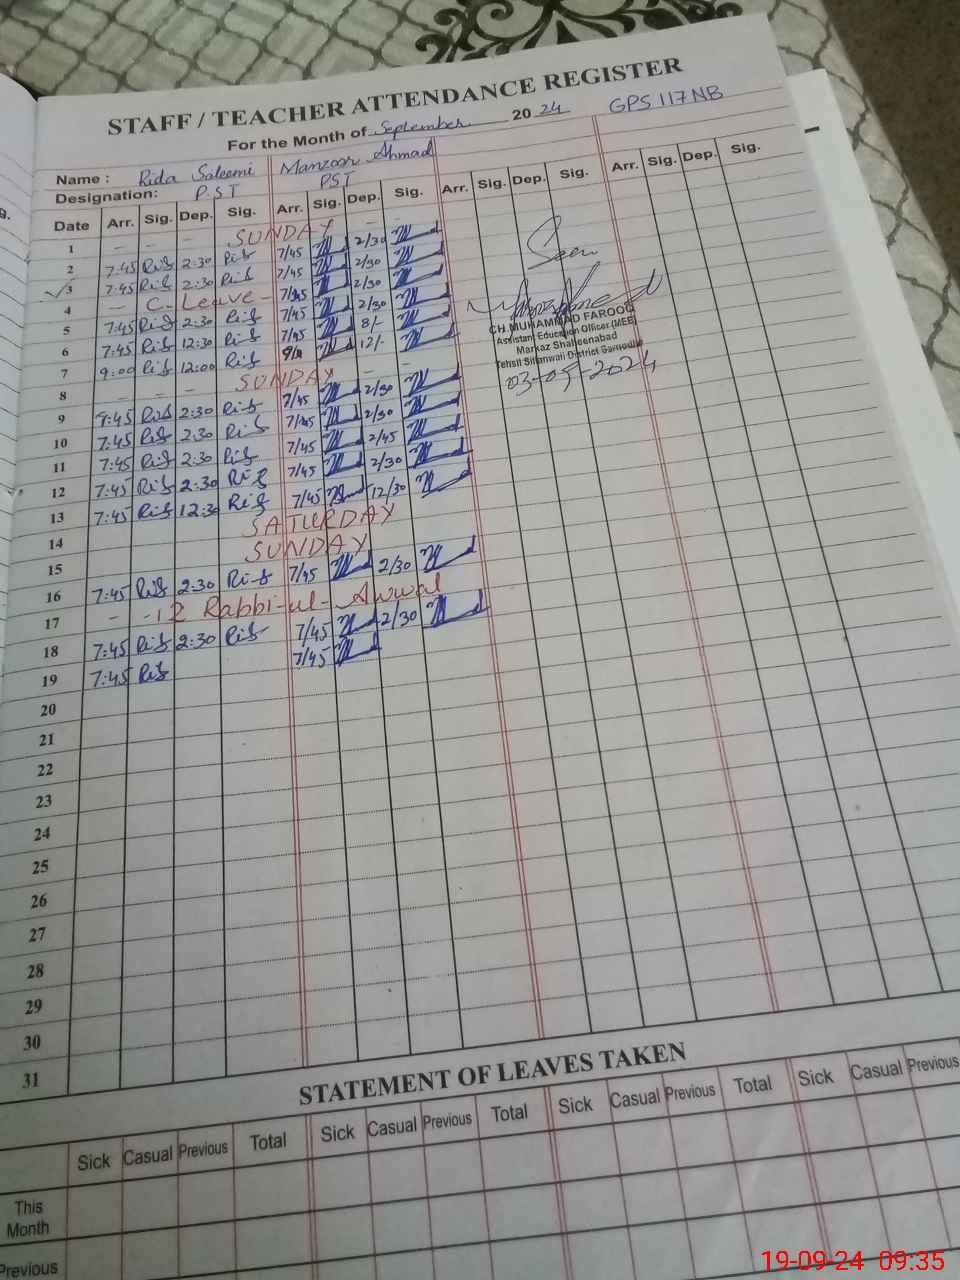 STAFF / TEACHER ATTENDANCE REGISTER
For the Month of September 2024 GPS 117 NB
Name : Rida Saleemi Manzoor Ahmad
Designation: P.S.T PST
Date Arr. Sig. Dep. Sig. Arr. Sig. Dep. Sig. Arr. Sig. Dep. Sig. Arr. Sig. Dep. Sig.
1 - - - SUNDAY - -
2 7:45 Rif 2:30 Rif 7/45 2/30
3 7:45 Rif 2:30 Rif 7/45 2/30
4 - C-Leave - 7/45 2/30
5 7:45 Rif 2:30 Rif 7/45 2/30
6 7:45 Rif 12:30 Rif 7/45 8/-
7 9:00 Rif 12:00 Rif 12/-
8 - - SUNDAY - -
9 7:45 Rif 2:30 Rif 7/45 2/30
10 7:45 Rif 2:30 Rif 7/45 2/30
11 7:45 Rif 2:30 Rif 7/45 2/45
12 7:45 Rif 2:30 Rif 7/45 2/30
13 7:45 Rif 12:30 Rif 7/45 12/30
14 SATURDAY
15 SUNDAY
16 7:45 Rif 2:30 Rif 7/45 2/30
17 - - 12 Rabbi-ul-Awwal
18 7:45 Rif 2:30 Rif 7/45 2/30
19 7:45 Rif 7/45
20
21
22
23
24
25
26
27
28
29
30
31
Seen
CH.MUHAMMAD FAROOQ
Assistant Education Officer (MEE)
Markaz Shaheenabad
Tehsil Sillanwali District Sargodha
03-09-2024
STATEMENT OF LEAVES TAKEN
Sick Casual Previous Total Sick Casual Previous Total Sick Casual Previous Total Sick Casual Previous
This Month
Previous
19-09-24 09:35